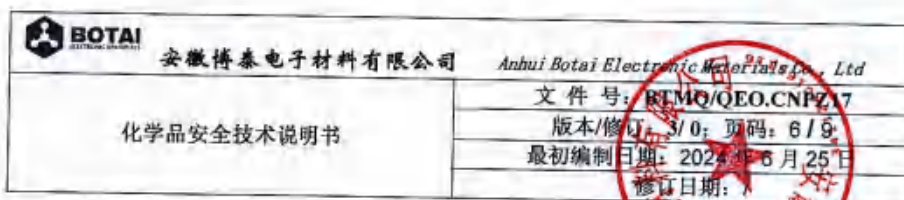 BOTAI
安徽博泰电子材料有限公司
Anhui Botai Electronic Materials Co., Ltd
化学品安全技术说明书
文 件 号: BTMQ/QEO.CNPZ17
版本/修订: 3/ 0; 页码: 6 / 9
最初编制日期: 2024 年 6 月 25 日
修订日期: /